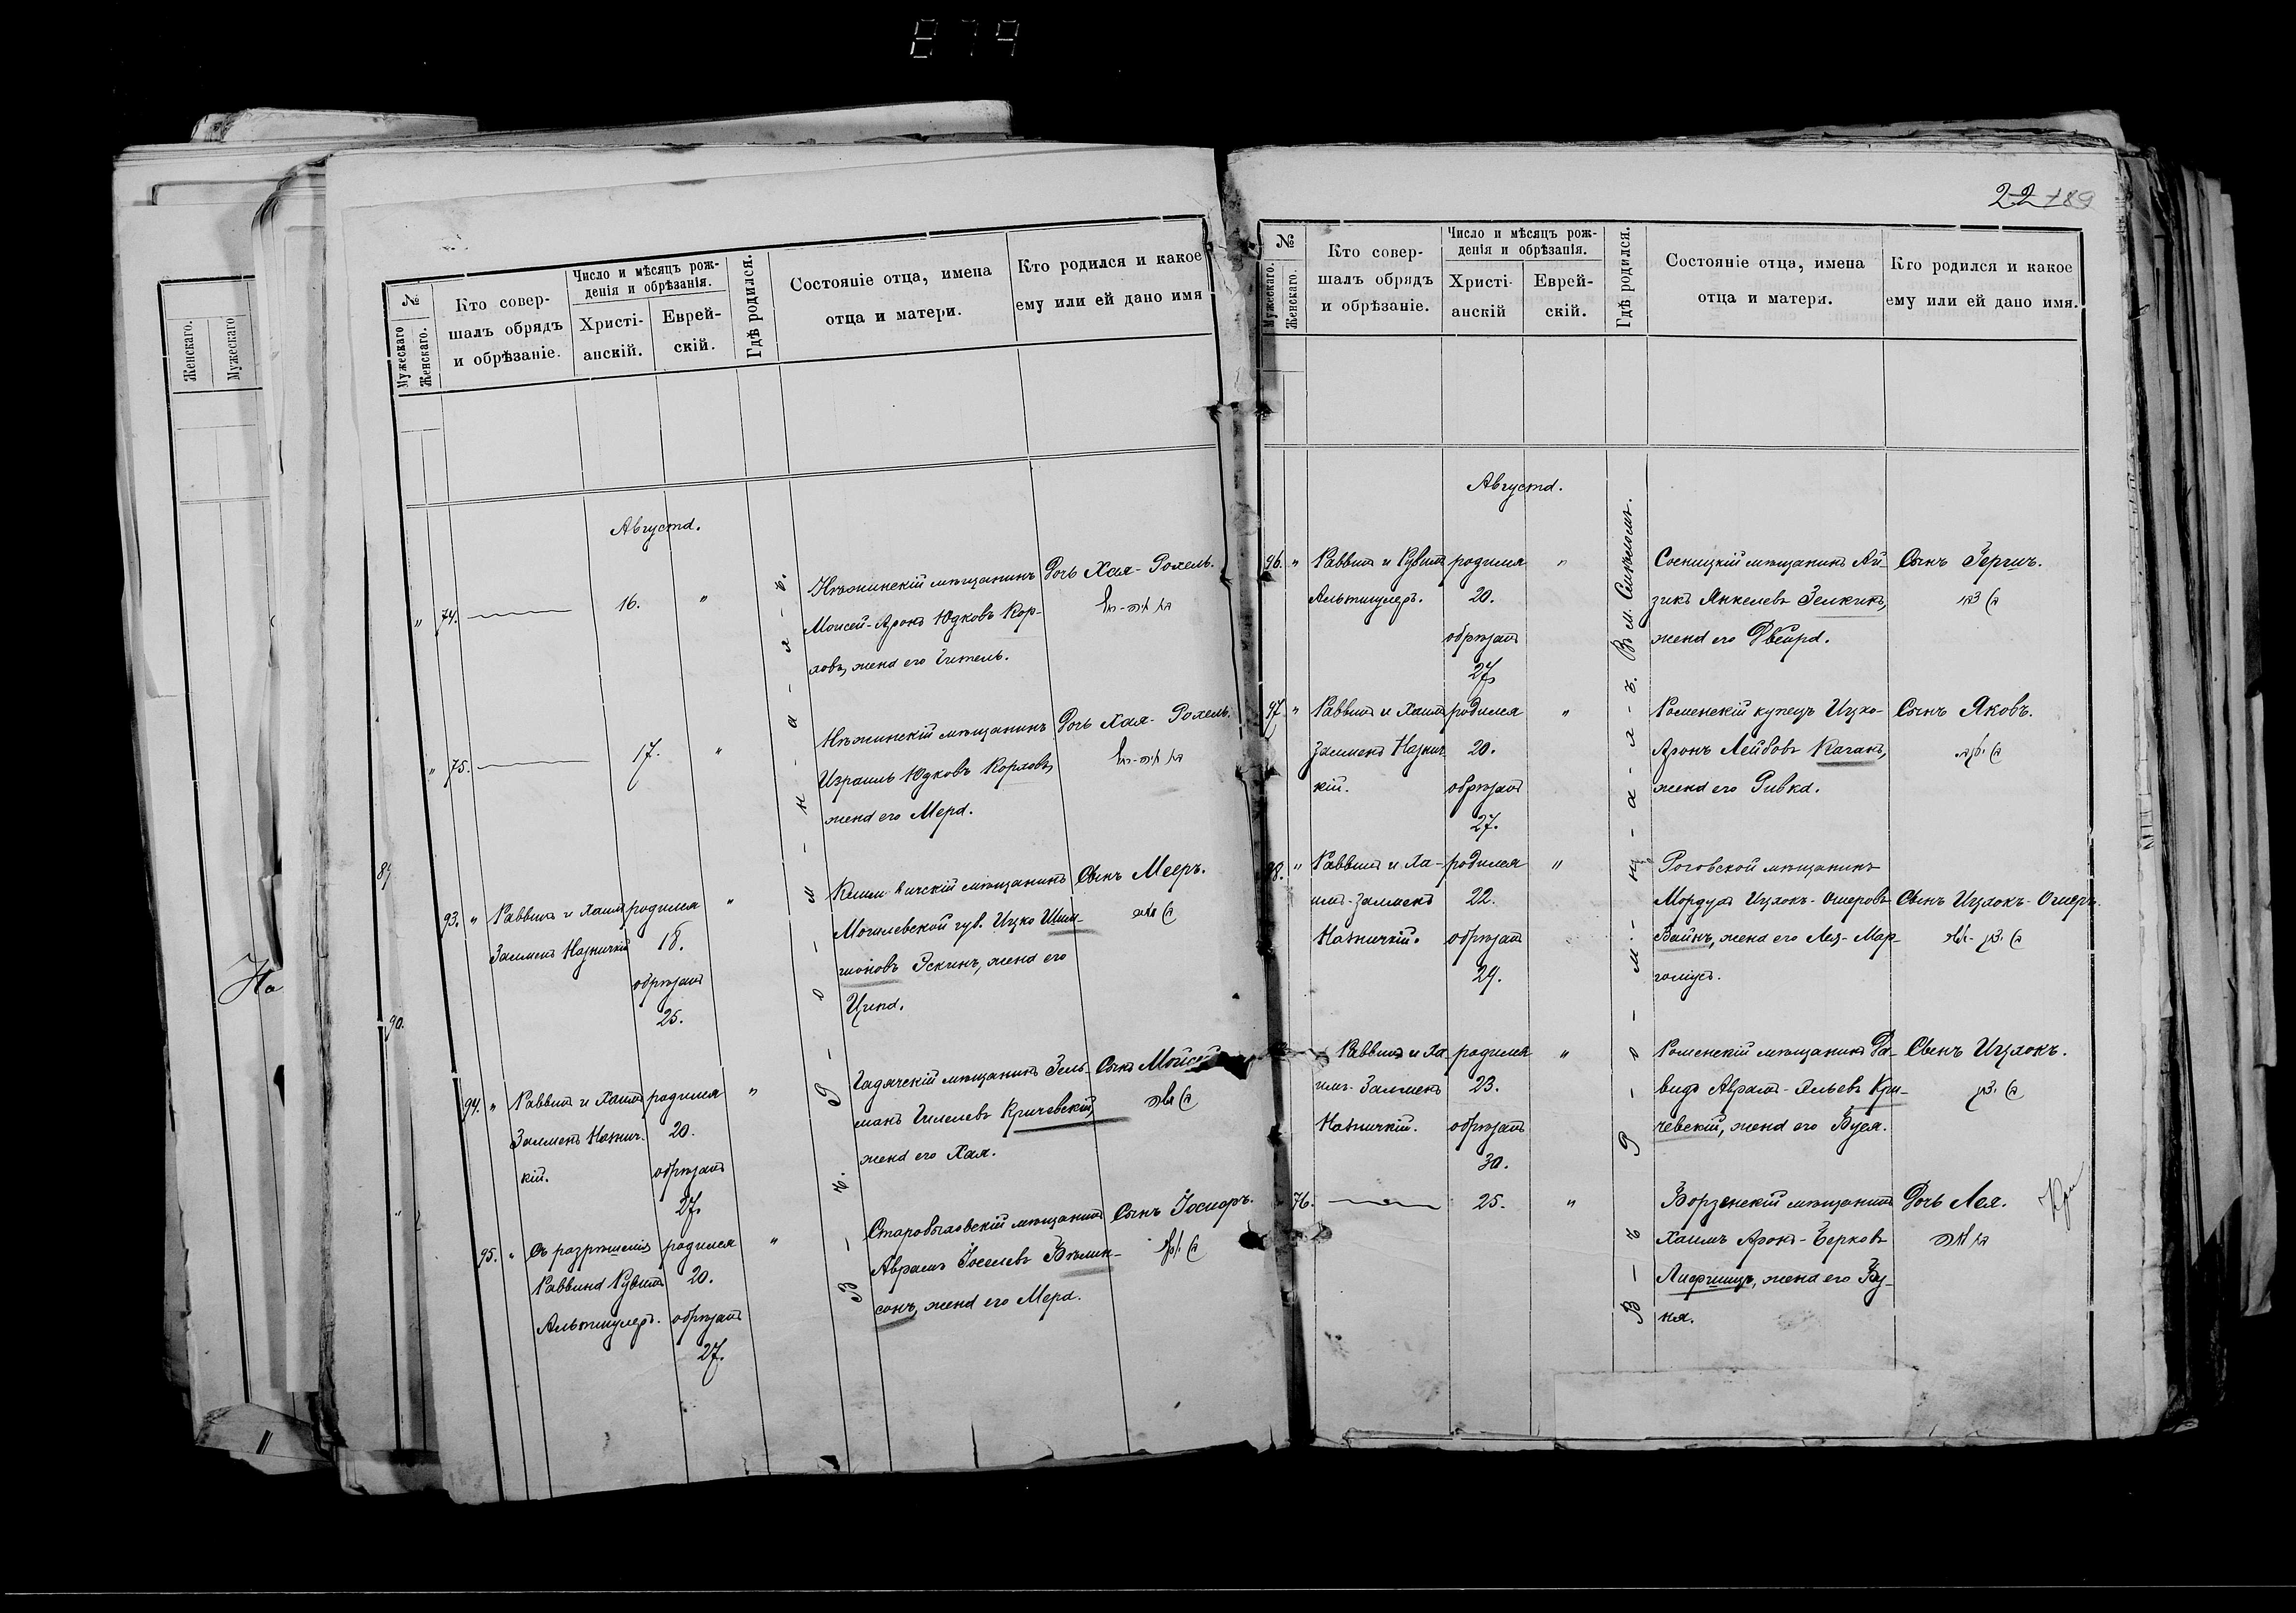 879
Женскаго.
Мужескаго
На
89
90.
№
Мужескаго
Женскаго.
Кто совер-
шалъ обрядъ
и обрѣзаніе.
Число и мѣсяцъ рож-
денія и обрѣзанія.
Христі-
анскій.
Еврей-
скій.
Гдѣ родился.
Состояніе отца, имена
отца и матери.
Кто родился и какое
ему или ей дано имя
Августа.
В - ъ. Р - о - м - н - а - х - ъ.
" 74. 16. "
Нѣжинскій мѣщанинъ
Моисей-Аронъ Юдковъ Кор-
ховъ, жена его Гитель.
Дочь Хая-Рохель.
" 75. 17. "
Нѣжинскій мѣщанинъ
Израиль Юдковъ Корховъ,
жена его Мера.
Дочь Хая-Рохель.
93. "
Раввинъ и Хаимъ
Залменъ Назницкій
родился
18.
обрѣзанъ
25.
"
мѣщанинъ
Могилевской губ. Ицко Шим-
оновъ Эскинъ, жена его
Ципа.
Сынъ Мееръ.
94. "
Раввинъ и Хаимъ
Залменъ Назниц-
кій.
родился
20.
обрѣзанъ
27.
"
Гадячскій мѣщанинъ Зель-
манъ Гилелевъ Кричевскій,
жена его Хая.
Сынъ Мойсей
משה
95. "
Съ разрѣшенія
Раввина Рувимъ
Альтшулеръ.
родился
20.
обрѣзанъ
27.
"
мѣщанинъ
Аврамъ Іоселевъ Бѣлин-
сонъ, жена его Мера.
Сынъ Іосифъ.
22 189
№
Мужескаго.
Женскаго.
Кто совер-
шалъ обрядъ
и обрѣзаніе.
Число и мѣсяцъ рож-
денія и обрѣзанія.
Христі-
анскій
Еврей-
скій.
Гдѣ родился.
Состояніе отца, имена
отца и матери.
Кто родился и какое
ему или ей дано имя.
Августа.
В - ъ Р - о - м - н - а - х - ъ. Въ м.
96. "
Раввинъ и Рувимъ
Альтшулеръ.
родился
20.
обрѣзанъ
27.
"
Сосницкій мѣщанинъ Ай-
зикъ Янкелевъ Зелкинъ,
жена его Двейра.
Сынъ
97 "
Раввинъ и Хаимъ
Залменъ Назниц-
кій.
родился
20.
обрѣзанъ
27.
"
Роменскій купецъ Ицхо-
Аронъ Лейбовъ Каганъ,
жена его Ривка.
Сынъ Яковъ.
98. "
Раввинъ и Ха-
имъ-Залменъ
Назницкій.
родился
22.
обрѣзанъ
29.
"
мѣщанинъ
Мордухъ Ицхокъ-Ошеровъ
Вайнъ, жена его Лея-Мар-
Сынъ Ицхокъ-Ошеръ.
Раввинъ и Ха-
имъ-Залменъ
Назницкій.
родился
23.
обрѣзанъ
30.
"
Роменскій мѣщанинъ Да-
видъ Аврамъ-Эльевъ Кри-
чевскій, жена его Буся.
Сынъ Ицхокъ.
76. 25. "
Борзенскій мѣщанинъ
Хаимъ Аронъ-Берковъ
Лифшицъ, жена его Бу-
ня.
Дочь Лея.